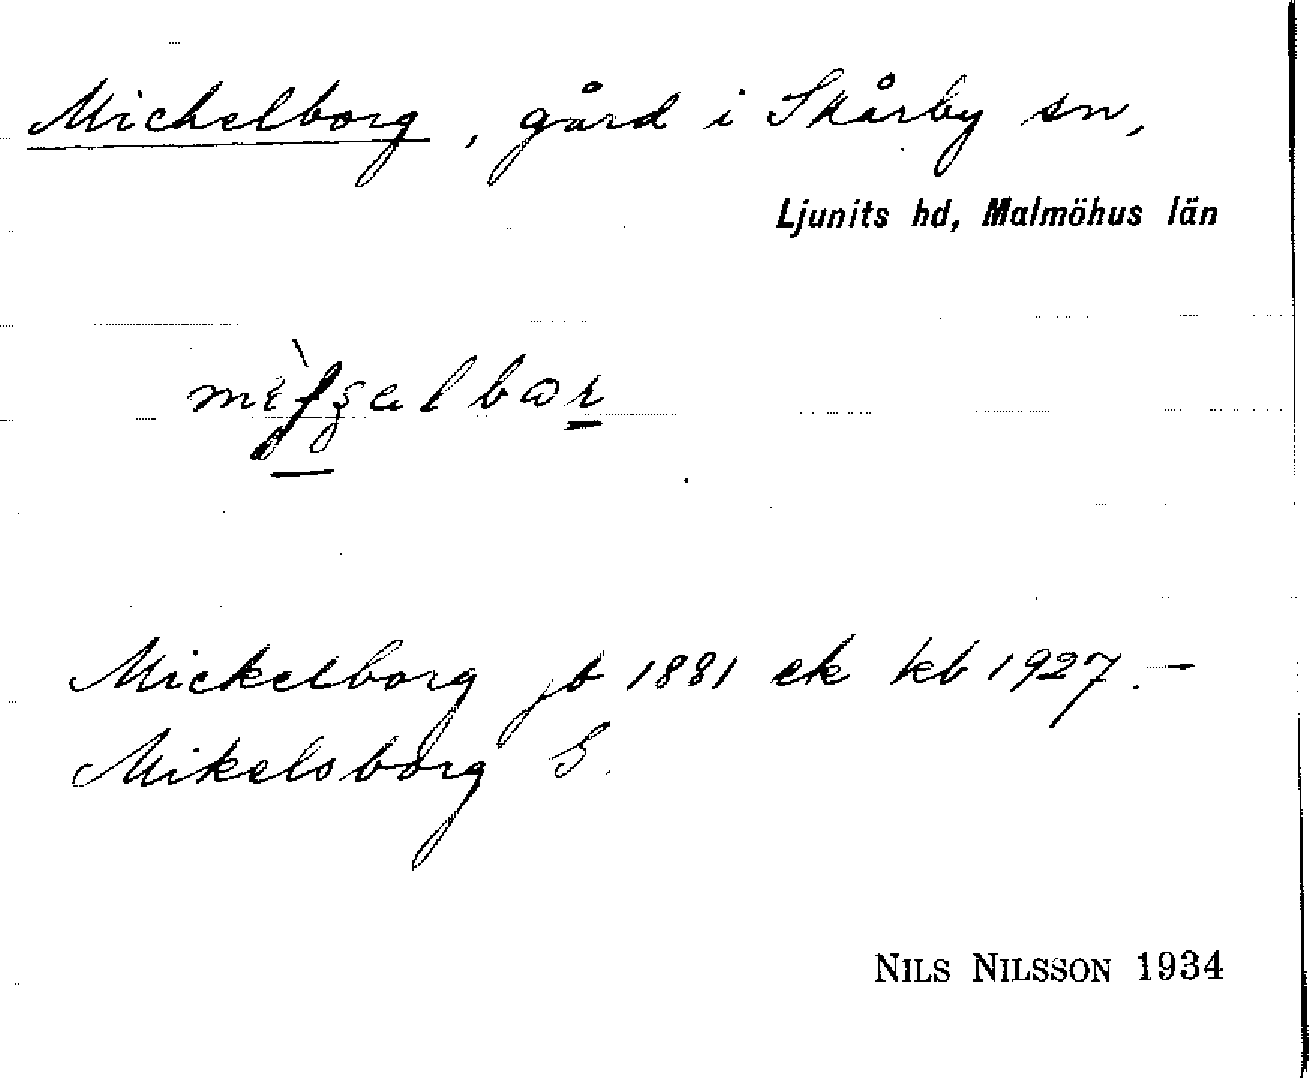 Michelborg, gård i Skårby sn,
Ljunits hd, Malmöhus län
Mickelborg jb 1881 ek kb 1927. –
Mikelsborg G.
NILS NILSSON 1934